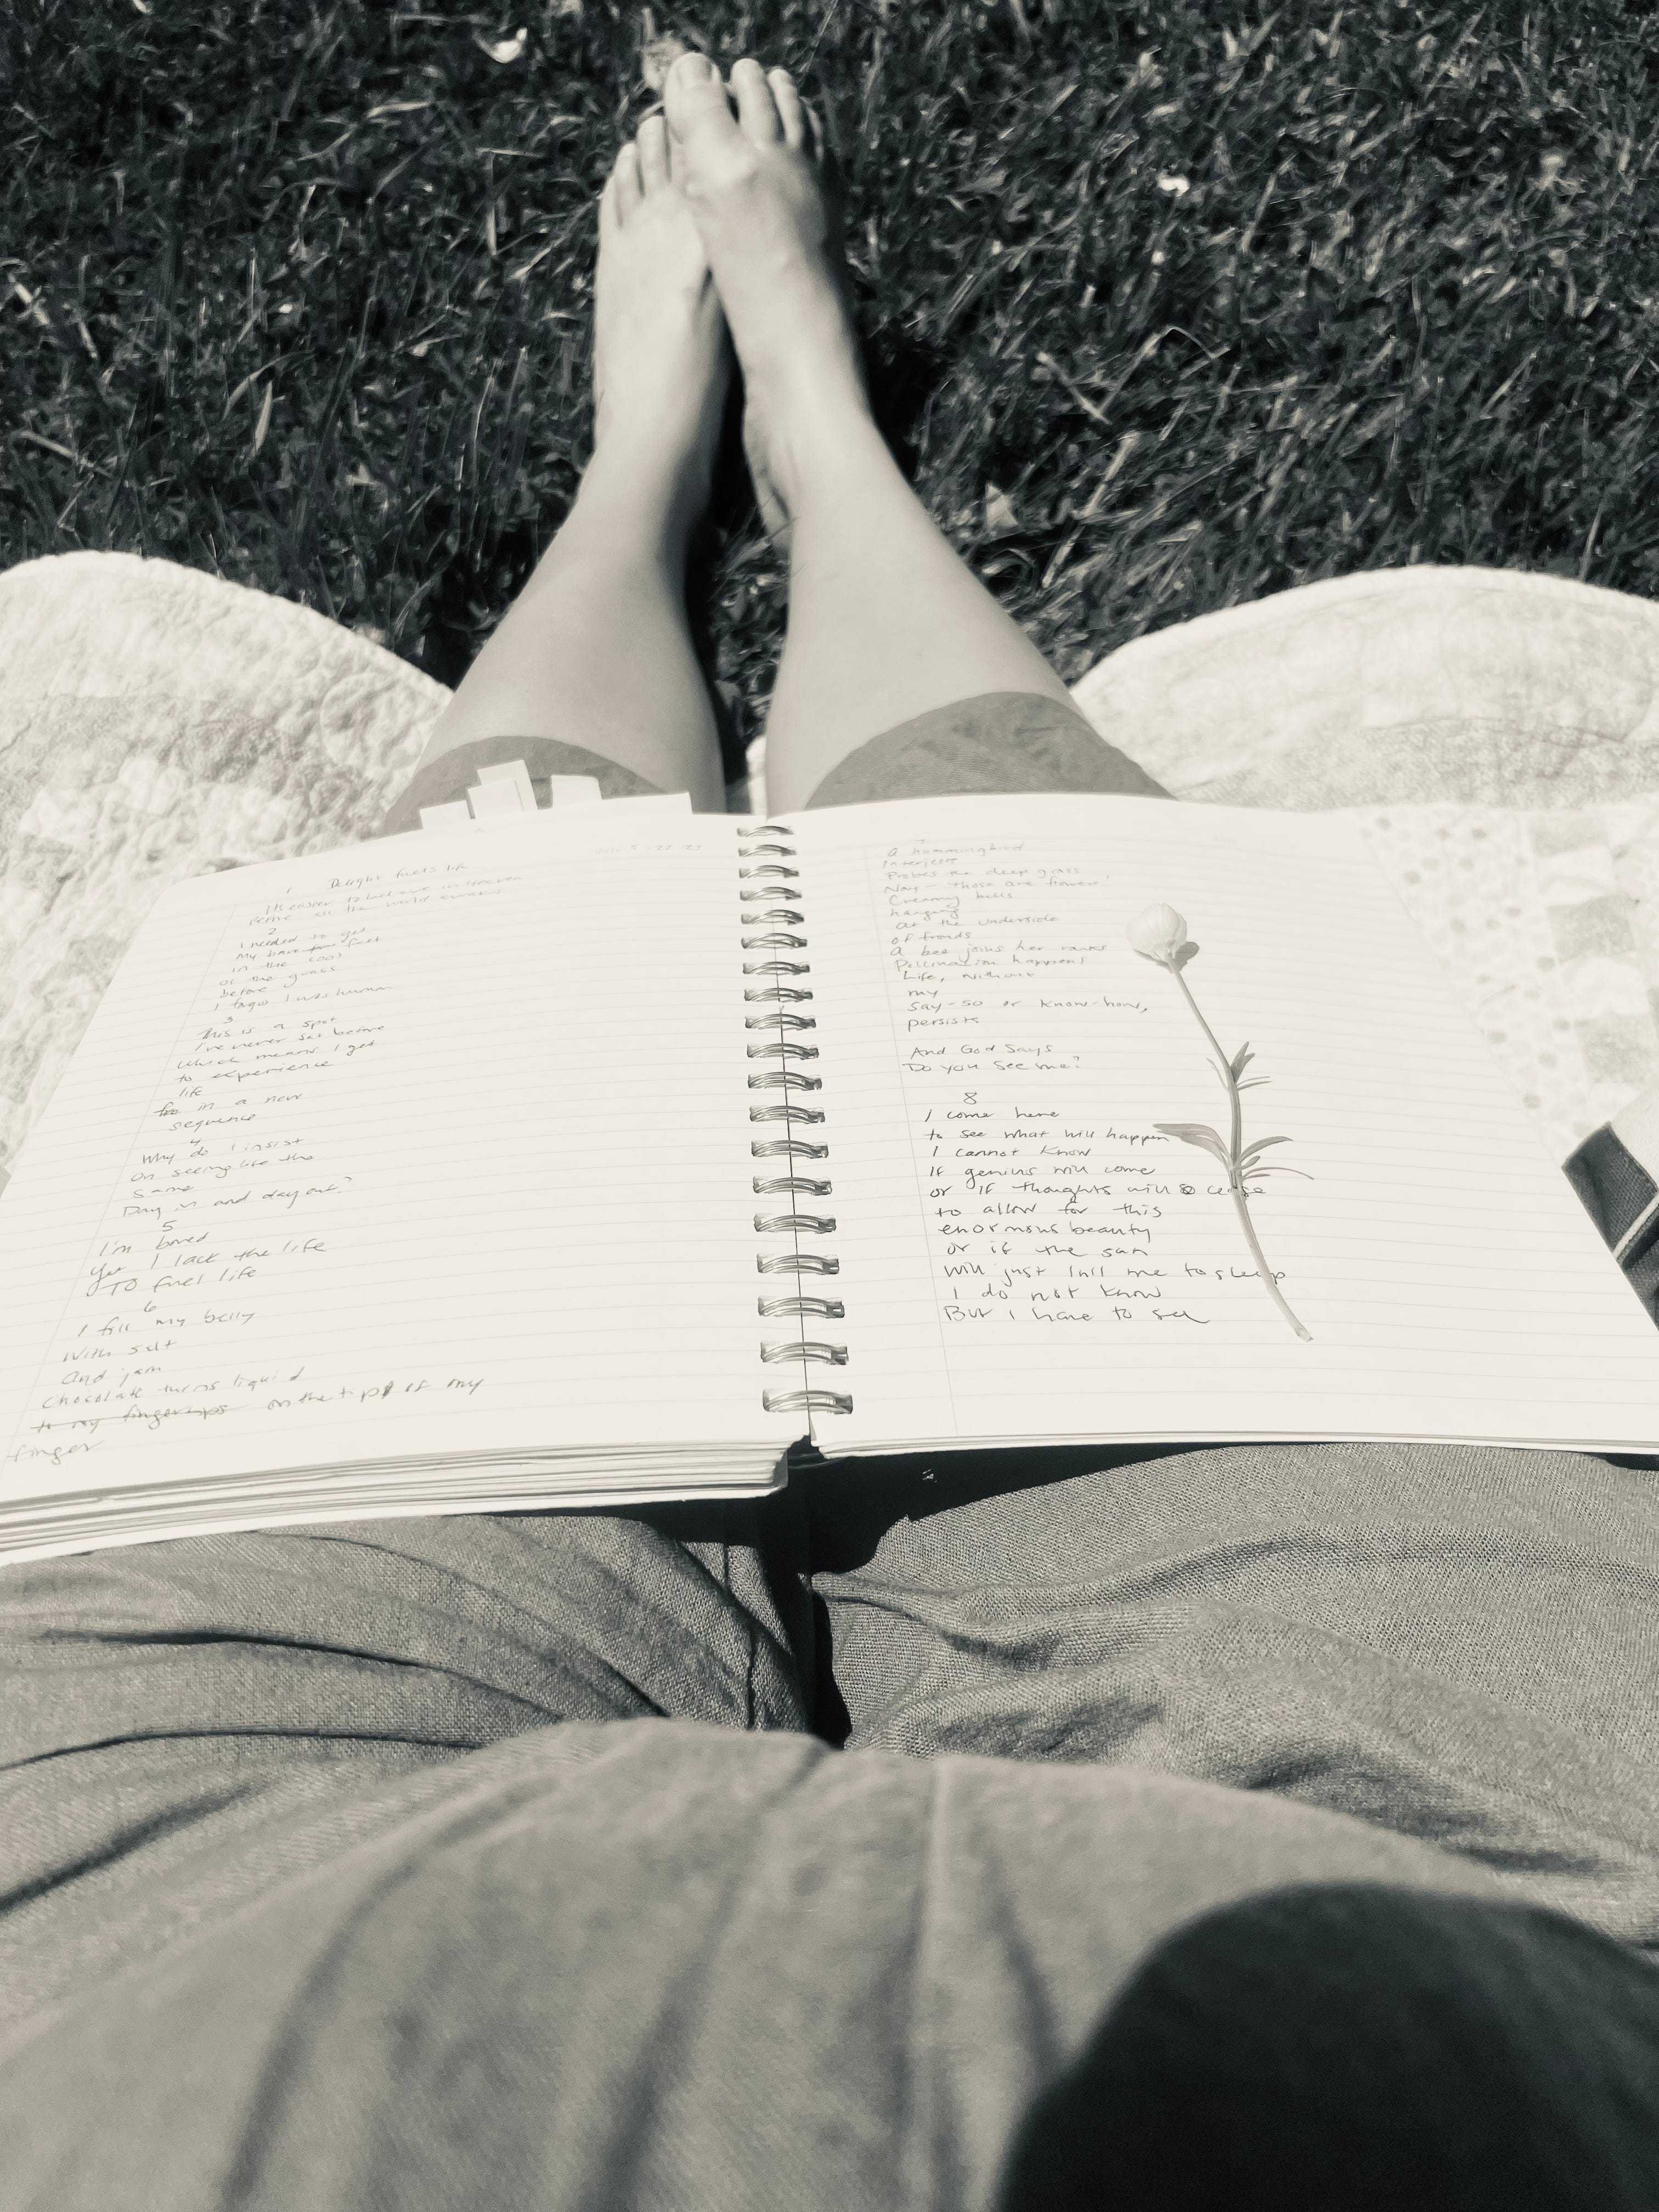 1 Delight fuels life
It's easier to believe in Heaven
Before all the world awakes
2
I needed to get
My bare feet
in the cool
of the grass
before
I forgot I was human
3
This is a spot
I've never sat before
which means I get
to experience
life
in a new
sequence
4
Why do I insist
On seeing life the
same
Day in and day out?
5
I'm bored
Yet I lack the life
TO fuel life
6
I fill my belly
With salt
And jam
Chocolate turns liquid
to my fingertips on the tip of my
finger
7
A hummingbird
Interjects
Probes the deep grass
Nay - those are flowers,
Creamy bells
hanging
at the underside
of fronds
A bee joins her ranks
Pollination happens
Life, without
my
say-so or know-how,
persists
And God Says
Do you see me?
8
I come here
to see what will happen
I cannot know
If genius will come
or if thoughts will cease
to allow for this
enormous beauty
or if the sun
will just lull me to sleep
I do not know
But I have to see